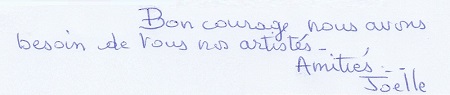 Bon courage nous avons
besoin de vous nos artistes -
Amitiés - -
Joelle